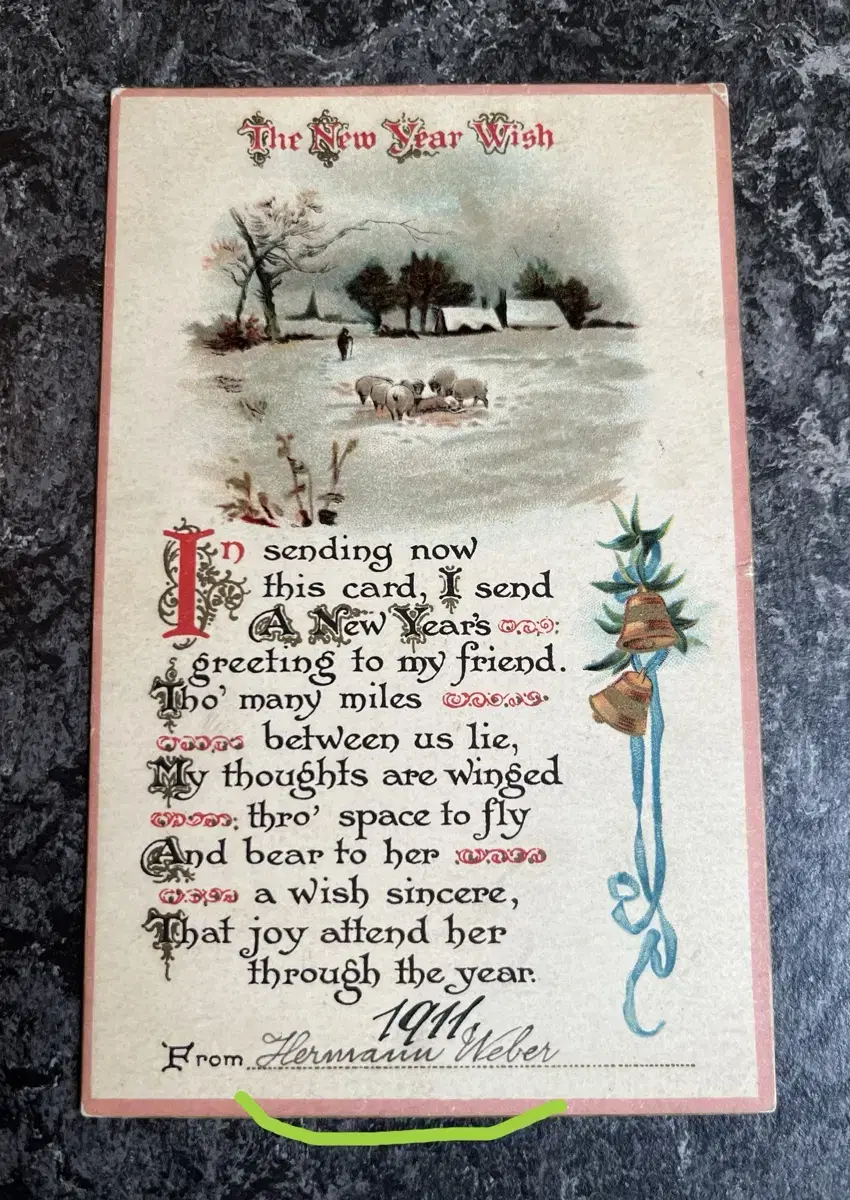 The New Year Wish
In sending now
this card, I send
A New Year's
greeting to my friend.
Tho' many miles
between us lie,
My thoughts are winged
thro' space to fly
And bear to her
a wish sincere,
That joy attend her
through the year.
1911.
From Hermann Weber